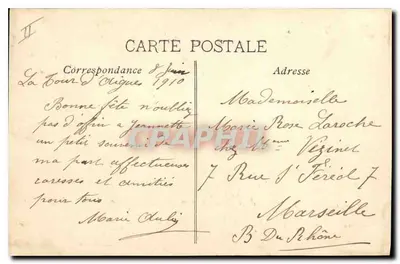 II
CARTE POSTALE
Correspondance
Adresse
8 Juin
La Tour d'Aigues 1910
Bonne fête n'oubliez
pas d'offrir a Jeannette
un petit souvenir de
ma part affectueuses
caresses et amitiés
pour tous.
Marie
Mademoiselle
Marie Rose Laroche
chez Mme Vezinet
7 Rue St Féréol 7
Marseille
B. Du Rhône